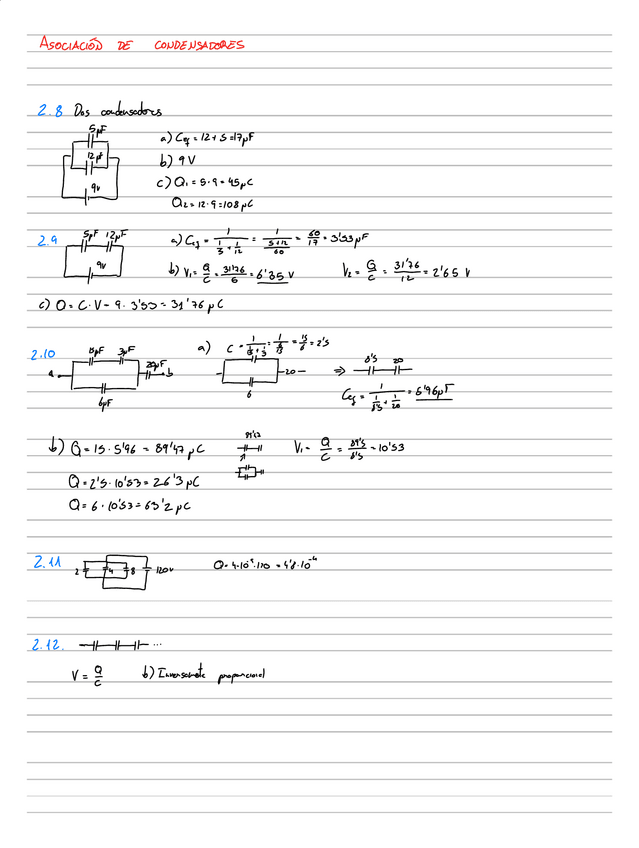 ASOCIACIÓN DE CONDENSADORES
2.8 Dos condensadores
5μF
12μF
9v
a) Ceq = 12 + 5 = 17μF
b) 9V
c) Q1 = 5 · 9 = 45μC
Q2 = 12 · 9 = 108μC
2.9
5μF 12μF
9v
a) Ceq = 1/(1/5 + 1/12) = 1/((5+12)/60) = 60/17 = 3'53μF
b) V1 = Q/C = 31'76/5 = 6'35 V
V2 = Q/C = 31'76/12 = 2'65 V
c) Q = C · V = 9 · 3'53 = 31'76μC
2.10
3μF
20μF
a b
6μF
a) C = = 2'5
20
6
⇒ 8'5 20
Ceq = 1/(1/8'5 + 1/20) = 5'96μF
b) Q = 15 · 5'96 = 89'47μC
V1 = Q/C = 89'5/8'5 = 10'53
Q = 2'5 · 10'53 = 26'3μC
Q = 6 · 10'53 = 63'2μC
2.11
2 4 8 120v
Q = · 120 = 4'8 · 10⁻⁴
2.12. ...
V = Q/C b) Inversamente proporcional